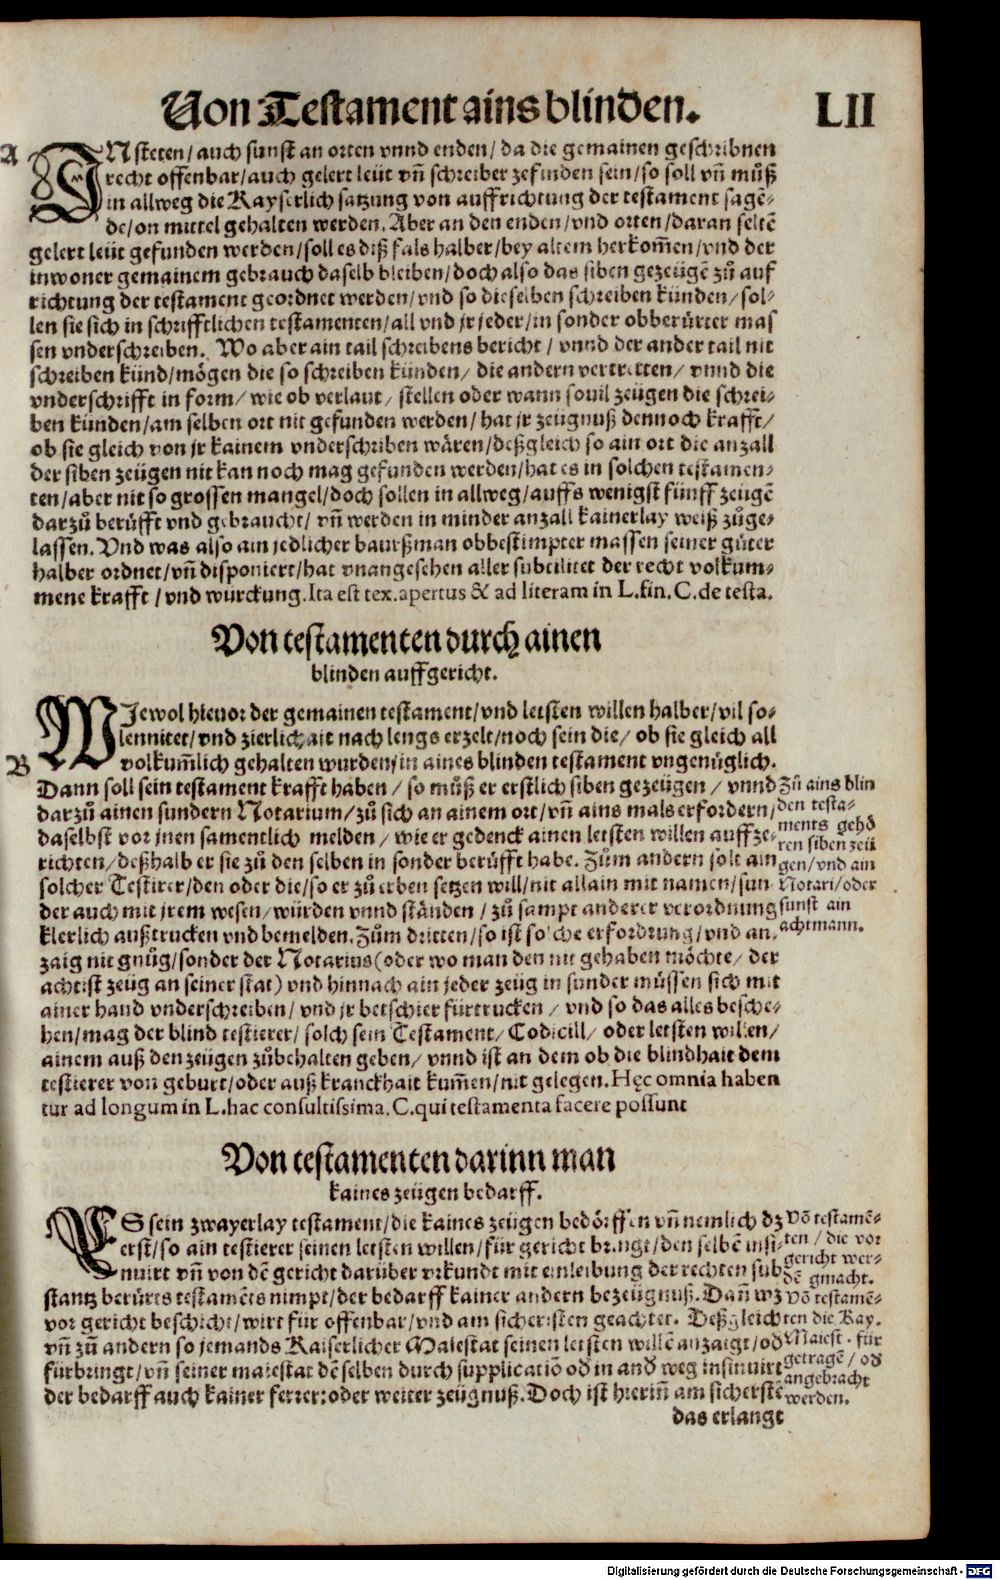 Von Testament ains blinden. LII
A
IN steten/ auch sunst an orten vnnd enden/ da die gemainen geschribnen
recht offenbar/auch gelert leüt vñ schreiber zefinden sein/so soll vñ můß
in allweg die Kayserlich satzung von auffrichtung der testament sagẽ-
de/on mittel gehalten werden. Aber an den enden/vnd orten/daran seltẽ
gelert leüt gefunden werden/soll es diß fals halber/bey altem herkom̃en/vnd der
inwoner gemainem gebrauch daselb bleiben/doch also das siben gezeügẽ zů auf
richtung der testament geordnet werden/vnd so dieselben schreiben künden/sol-
len sie sich in schrifftlichen testamenten/all vnd jr jeder/in sonder obberürter mas
sen vnderschreiben. Wo aber ain tail schreibens bericht/ vnnd der ander tail nit
schreiben künd/mögen die so schreiben künden/ die andern vertretten/ vnnd die
vnderschrifft in form/ wie ob verlaut/ stellen oder wann souil zeügen die schrei-
ben künden/am selben ort nit gefunden werden/ hat jr zeügnuß dennoch krafft/
ob sie gleich von jr kainem vnderschriben wären/deßgleich so ain ort die anzall
der siben zeügen nit kan noch mag gefunden werden/hat es in solchen testamen-
ten/aber nit so grossen mangel/doch sollen in allweg/auffs wenigst fünff zeügẽ
darzů berüfft vnd gebraucht/ vñ werden in minder anzall kainerlay weiß zůge-
lassen. Vnd was also ain jedlicher baurßman obbestimpter massen seiner güter
halber ordnet/vñ disponiert/hat vnangesehen aller subtilitet der recht volkum-
mene krafft/vnd würckung. Ita est tex.apertus & ad literam in L.fin.C.de testa.
Von testamenten durch ainen
blinden auffgericht.
WJewol hieuor der gemainen testament/vnd letsten willen halber/vil so-
lennitet/vnd zierlichait nach lengs erzelt/noch sein die/ ob sie gleich all
B
volkum̃lich gehalten wurden/in aines blinden testament vngenüglich.
Dann soll sein testament krafft haben/ so můß er erstlich siben gezeügen/ vnnd
darzů ainen sundern Notarium/zů sich an ainem ort/vñ ains mals erfordern/
daselbst vor jnen samentlich melden/ wie er gedenck ainen letsten willen auffze-
richten/deßhalb er sie zů den selben in sonder berüfft habe. Zům andern solt ain
solcher Testirer/den oder die/so er zů erben setzen will/nit allain mit namen/sun
der auch mit jrem wesen/würden vnnd ständen/ zů sampt anderer verordnung
klerlich außtrucken vnd bemelden. Zům dritten/so ist solche erfordrung/vnd an-
zaig nit gnůg/sonder der Notarius (oder wo man den nit gehaben möchte/ der
achtist zeüg an seiner stat) vnd hinnach ain jeder zeüg in sunder müssen sich mit
ainer hand vnderschreiben/ vnd jr betschier fürtrucken/ vnd so das alles besche-
hen/mag der blind testierer/ solch sein Testament/ Codicill/ oder letsten willen/
ainem auß den zeügen zůbehalten geben/ vnnd ist an dem ob die blindhait dem
testierer von geburt/oder auß kranckhait kum̃en/nit gelegen. Hęc omnia haben
tur ad longum in L.hac consultissima.C.qui testamenta facere possunt
Zů ains blin
den testa-
ments gehö
ren siben zeü
gen/vnd ain
Notari/oder
sunst ain
achtmann.
Von testamenten darinn man
kaines zeügen bedarff.
ES sein zwayerlay testament/die kaines zeügen bedörffen vñ nemlich dz
erst/so ain testierer seinen letsten willen/für gericht bringt/den selbẽ insi-
nuirt vñ von dẽ gericht darüber vrkundt mit einleibung der rechten sub
stantz berürts testamẽts nimpt/der bedarff kainer andern bezeügnuß. Dañ wz
vor gericht beschicht/wirt für offenbar/vnd am sicheristen geachtet. Deßgleich
vñ zů andern so jemands Kaiserlicher Maiestat seinen letsten willẽ anzaigt/od
fürbringt/vñ seiner maiestat dẽ selben durch supplicatiõ od in and weg insinuirt
der bedarff auch kainer ferrer: oder weiter zeügnuß. Doch ist hieriñ am sicherstẽ
das erlangt
Võ testamẽ-
ten/ die vor
gericht wer-
dẽ gmacht.
Võ testamẽ-
ten die Kay.
Maiest. für
getragẽ/ od
angebracht
werden.
Digitalisierung gefördert durch die Deutsche Forschungsgemeinschaft - DFG